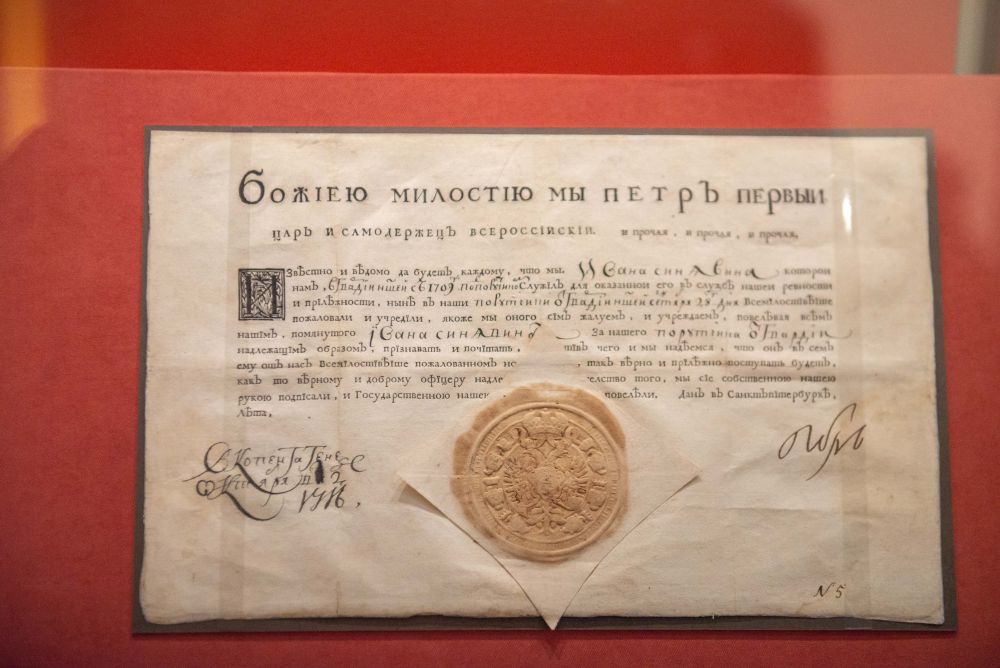 БОЖІЕЮ МИЛОСТІЮ МЫ ПЕТРЪ ПЕРВЫИ
ЦАРЬ И САМОДЕРЖЕЦЪ ВСЕРОССІЙСКІЙ. и прочая, и прочая, и прочая,
ИЗвѣстно и вѣдомо да будетъ каждому, что мы. Ивана синАвина которои
намъ, 1709 Служилъ для оказаннои его въ службѣ нашеи ревности
и прілѣжности, нынѣ въ наши 28 дня Всемілостівѣіше
пожаловали и учреділи, якоже мы оного сімъ жалуемъ, и учреждаемъ, повелѣвая всѣмъ
нашімъ, помянутого іѡана синАвина За нашего порутчіка
надлежащімъ образомъ, прізнавать и почітать, тівъ чего и мы надѣемся, что онъ въ семъ
ему отъ насъ Всемілостівѣіше пожалованномъ , такъ вѣрно и прілѣжно поступать будетъ,
какъ то вѣрному и доброму офіцеру надле телство того, мы сіе собственною нашею
рукою подпісали, и Государственною нашею повелѣли. Данъ въ Санктъпітербуркѣ,
Лѣта,
В Копенгагене
1716.
Петръ
N 5